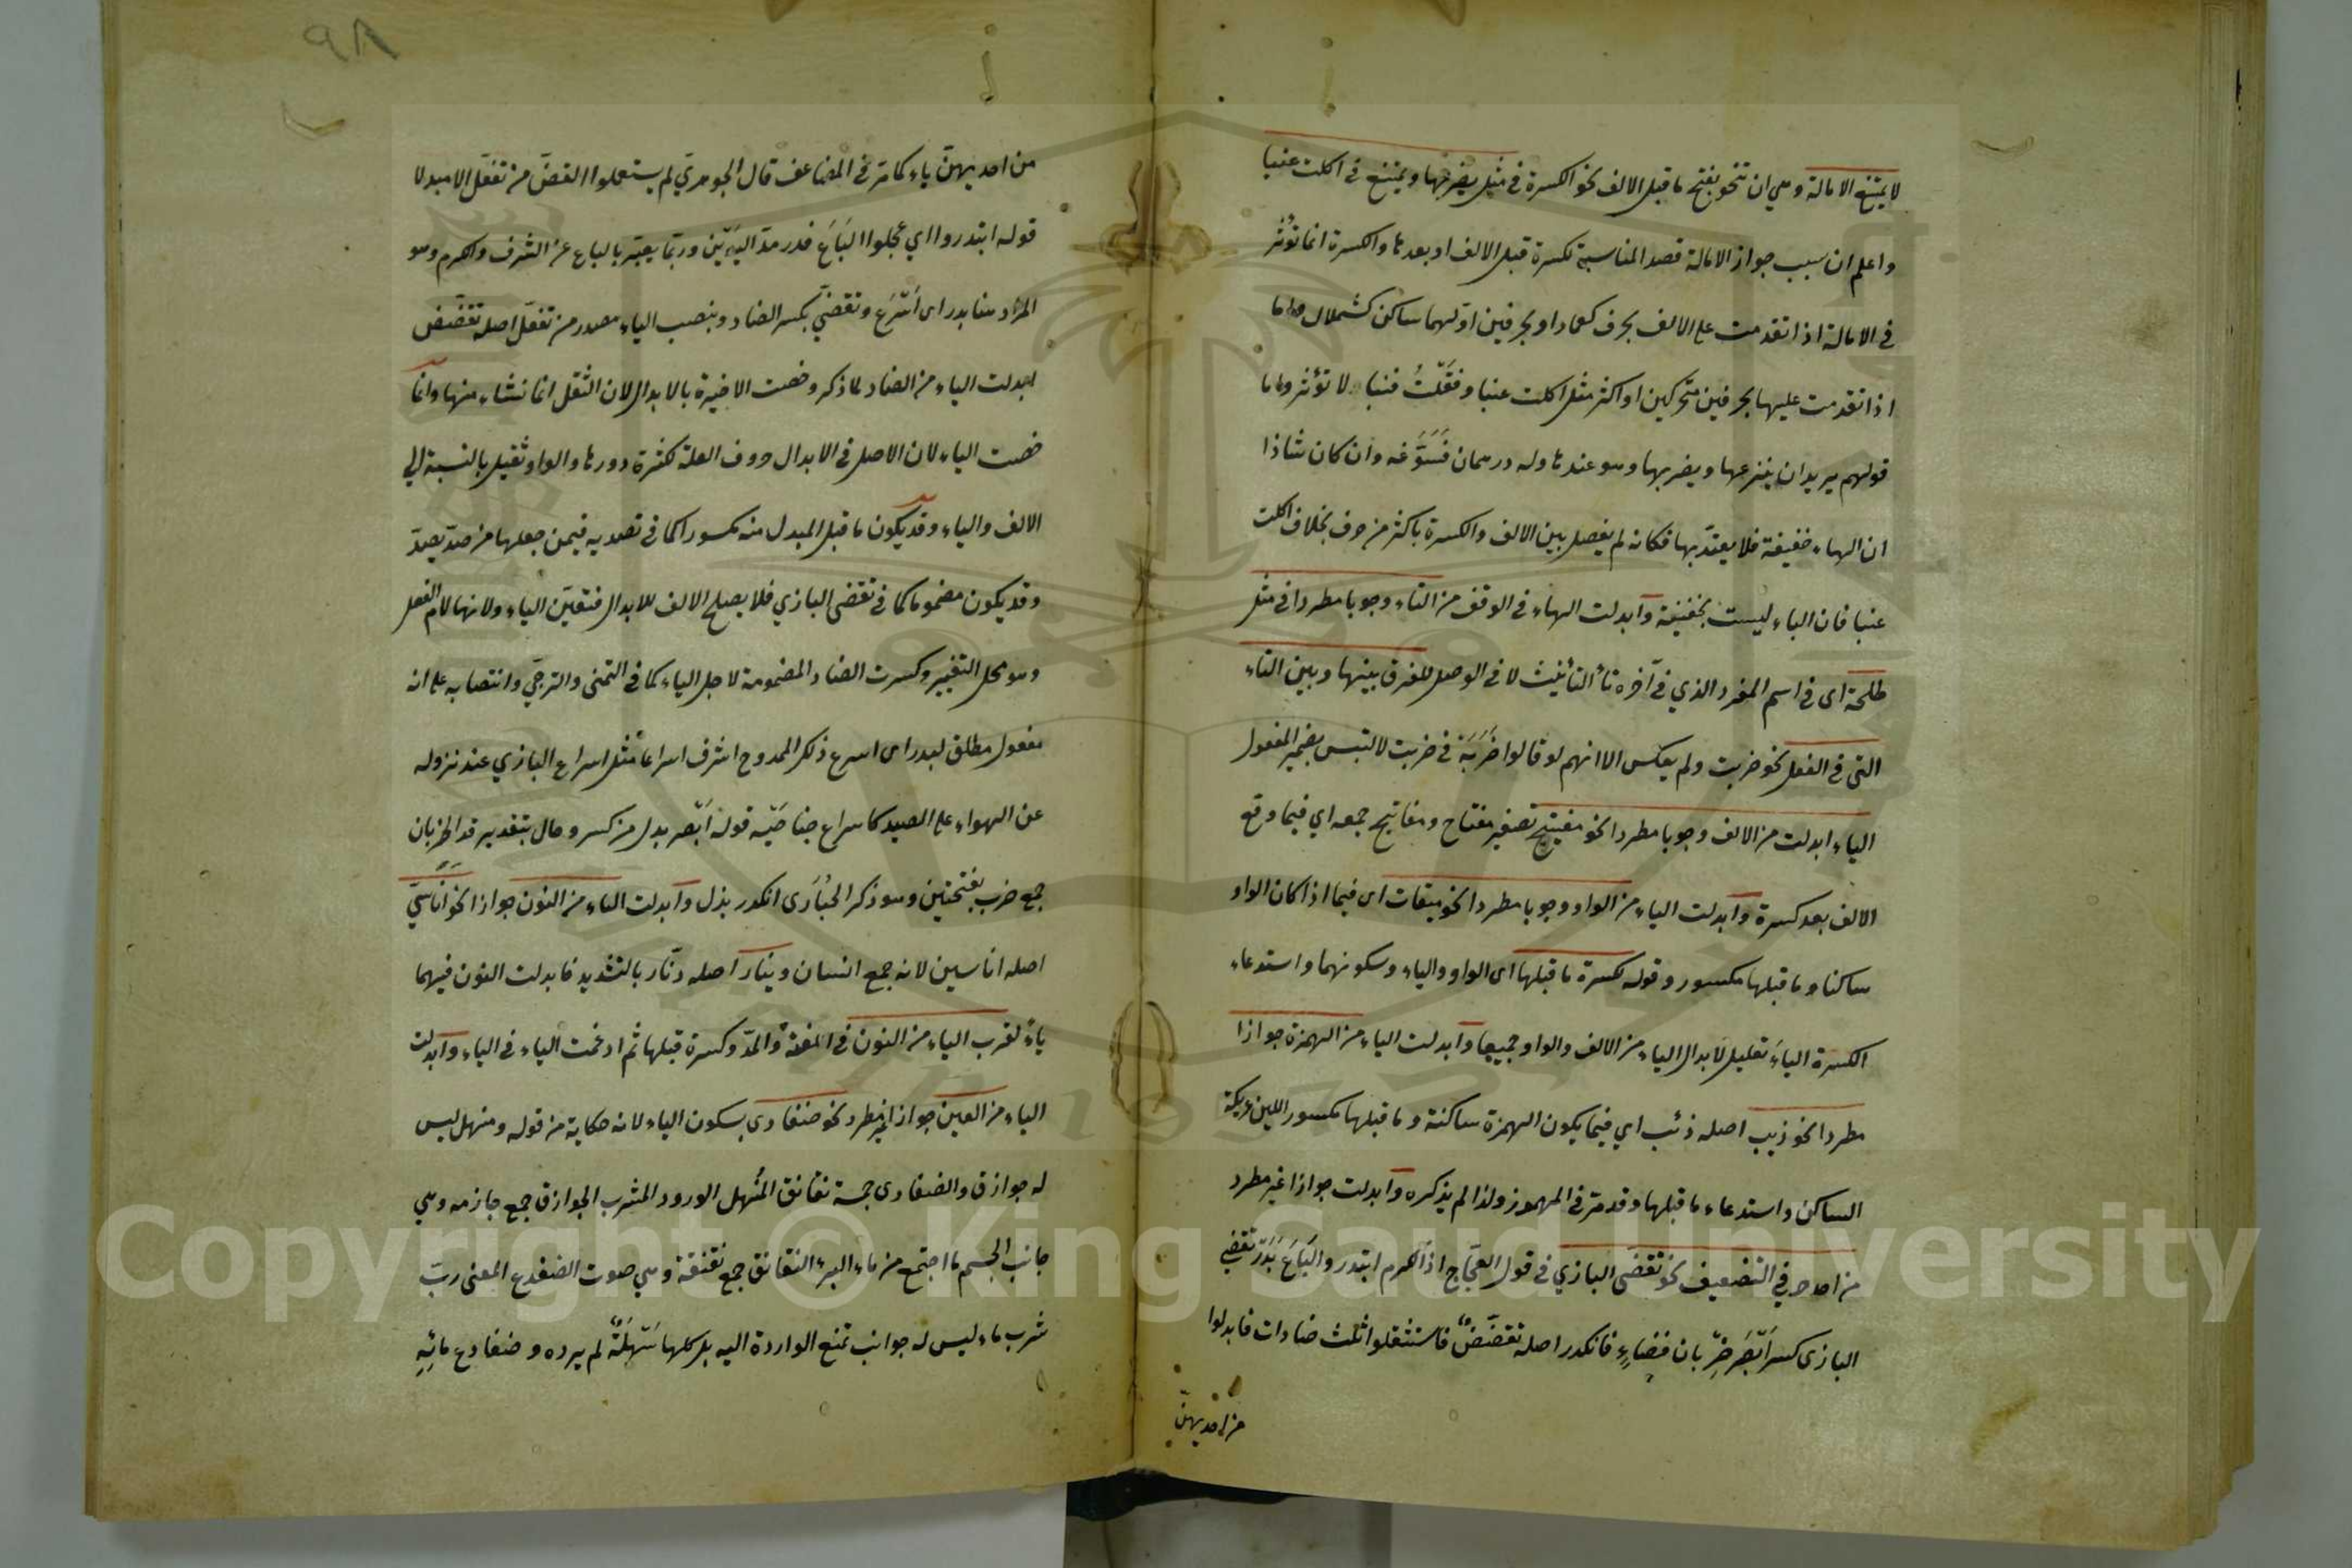 لا يمتنع الامالة وهي ان تنحو بفتح ما قبل الالف نحو الكسرة في مثل يضربها ويمتنع في اكلت عنبا
واعلم ان سبب جواز الامالة قصد المناسبة لكسرة قبل الالف او بعدها والكسرة انما تؤثر
في الامالة اذا تقدمت على الالف بحرف كعماد او بحرفين اوّلهما ساكن كشملال واما
اذا تقدمت عليها بحرفين متحركين او اكثر مثل اكلت عنبا وفتّلتُ قنبا لا تؤثر واما
قولهم يريد ان ينزعها ويضربها وهو عندها وله درهمان فسَوَّغه وان كان شاذا
ان الهاء خفيفة فلا يعتدّ بها فكانه لم يفصل بين الالف والكسرة باكثر من حرف بخلاف اكلت
عنبا فان الباء ليست بخفيفة وابدلت الهاء في الوقف من التاء وجوبا مطردا في مثل
طلحة اى في اسم المفرد الذي في آخره تاء التأنيث لا في الوصل للفرق بينها وبين التاء
التى في الفعل نحو ضربت ولم يعكس الا انهم لو قالوا ضَرَبَة في ضربت لالتبس بضمير المفعول
الياء ابدلت من الالف وجوبا مطردا نحو مفيتيح تصغير مفتاح ومفاتيح جمعه اي فيما وقع
الالف بعد كسرة وابدلت الياء من الواو وجوبا مطردا نحو ميقات اى فيما اذا كان الواو
ساكنا وما قبلها مكسور وقوله لكسرة ما قبلها اى الواو والياء وسكونهما واستدعاء
الكسرة الياءَ تعليل لابدال الياء من الالف والواو جميعا وابدلت الياء من الهمزة جوازا
مطردا نحو ذيب اصله ذئب اي فيما يكون الهمزة ساكنة وما قبلها مكسور اللين عريكة
الساكن واستدعاء ما قبلها وقد مرّ في المهموز ولذا لم يذكره وابدلت جوازا غير مطرد
من احد حرفي التضعيف نحو تقضّى البازي في قول العجّاج اذا الكرم ابتدروا البَاعَ بَدَرْ تقضّي
البازى كسر اَبْصَر خِرْبان فضاءٍ فانكدر اصله تقضّضٌ فاستثقلوا ثلث ضادات فابدلوا
من احديهنّ
٩٨
من احديهنّ ياء كما مرّ في المضاعف قال الجوهريّ لم يستعملوا القضّ من تفعّل الا مبدلا
قوله ابتدروا اي عجلوا البَاعَ قدر مدّ اليدين وربّما يعبّر بالباع عن الشرف والكرم وهو
المراد هنا بدر اى اَسْرَعَ وتقضّيَ بكسر الضاد وبنصب الياء مصدر من تفعّل اصله تقضّض
ابدلت الياء من الضاد لما ذكر وخصت الاخيرة بالابدال لان الثقل انما نشاء منها وانّما
خصت الياء لان الاصل في الابدال حروف العلة لكثرة دورها والواو ثقيل بالنسبة الى
الالف والياء وقد يكون ما قبل المبدل منه مكسورا كما في تصديه فيمن جعلها من صدّ يصدّ
وقد يكون مضموما كما في تقضى البازي فلا يصلح الالف للابدال فتعيّن الياء ولانها لام الفعل
وهو محل التغيير وكسرت الضاد المضمومة لاجل الياء كما في التمنى والترجّي وانتصابه على انه
مفعول مطلق لبدر اى اسرع ذلك الممدوح اشرف اسراعا مثل اسراع البازي عند نزوله
عن الهواء على الصيد كاسراع جناحيه قوله اَبْصر بدل من كسر وحال بتقدير قد الخربان
جمع خرب بفتحتين وهو ذكر الحُبَارَى انكدر بذل وابدلت الياء من النون جوازا نحو اَناسيّ
اصله اناسين لانه جمع انسان ودينار اصله دنّار بالتشديد فابدلت النون فيهما
ياءً لقرب الياء من النون في الغنة والمدّ وكسرة قبلها ثم ادغمت الياء في الياء وابدلت
الياء من العين جوازا غير مطرد نحو ضفادى بسكون الياء لانه حكاية من قوله ومنهل ليس
له حوازق والضفادى جمة نقانق المنهل الورود المشرب الحوازق جمع حازمه وهي
جانب الجسم ما اجتمع من ماء البئر النقانق جمع نقنقة وهي صوت الضفدع المعنى ربّ
شرب ماء ليس له جوانب تمنع الواردة اليه بل كلها سَهْلَةٌ لم يرده وضفادع مائِهِ
Copyright © King Saud University